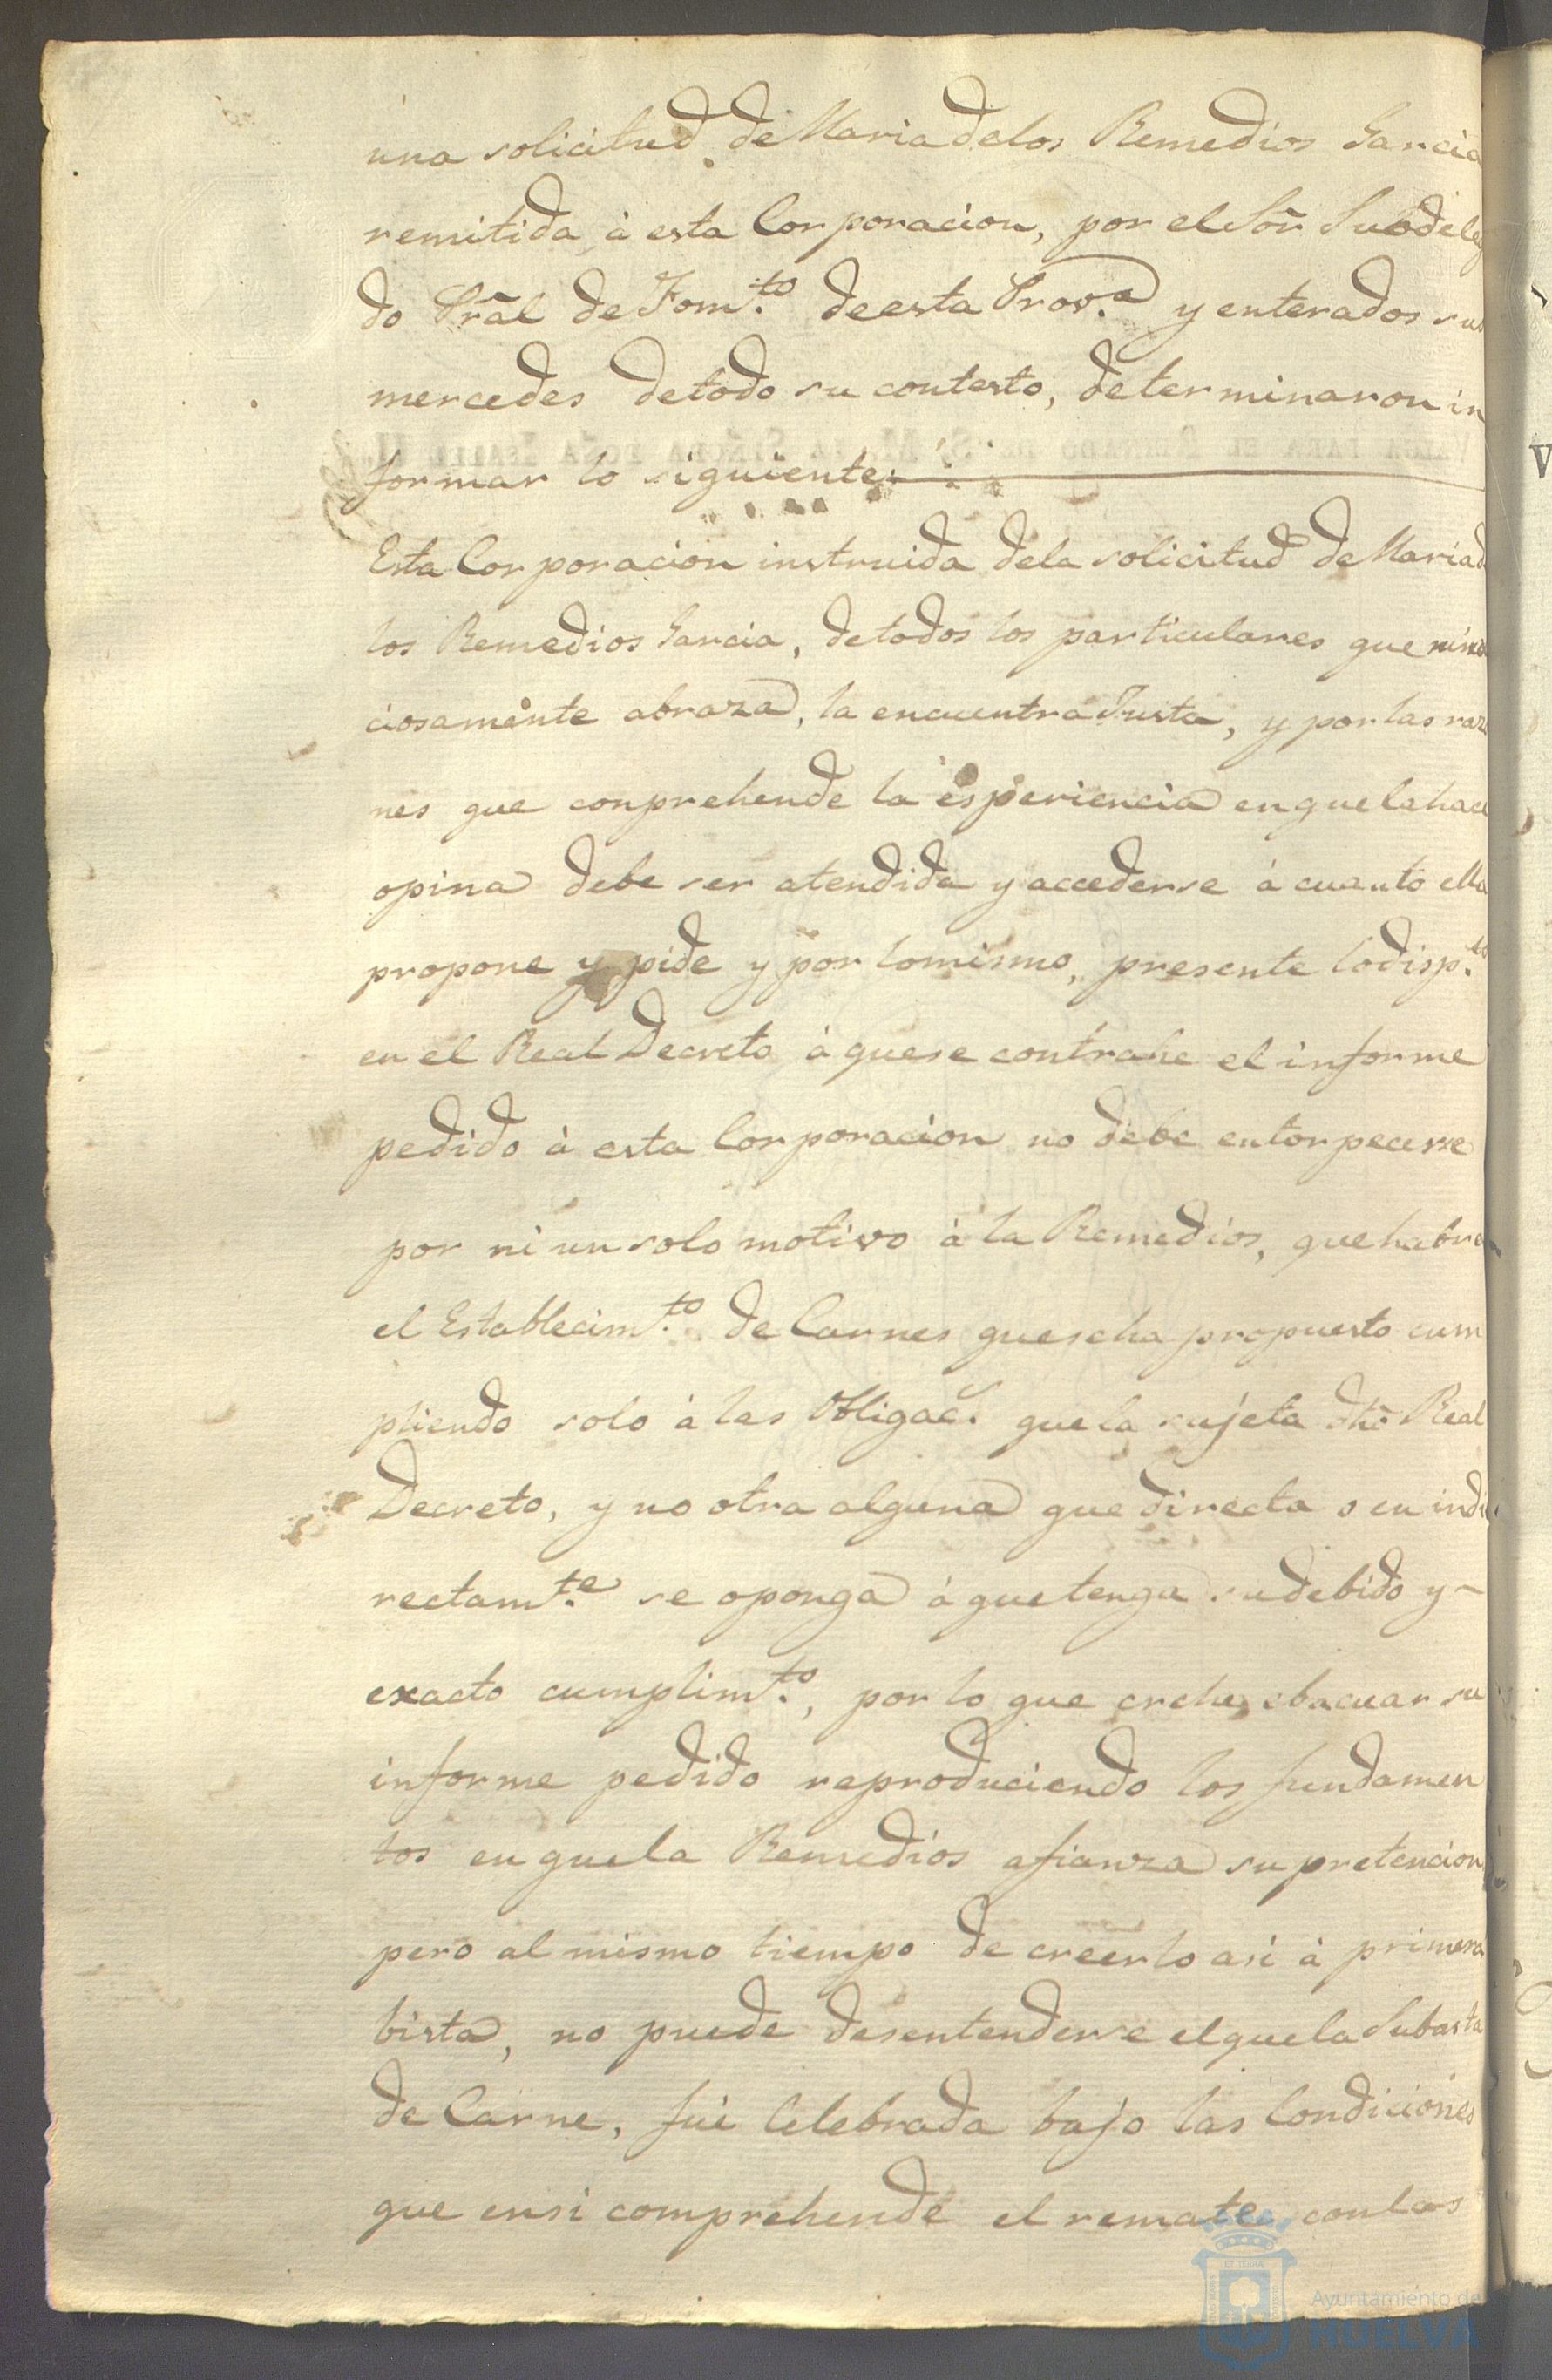 una solicitud de Maria de los Remedios Garcia
remitida à esta Corporacion, por el Sor̃ Subdeleg
do Pr̃al de Fom.to de esta Prov.a y enterados sus
mercedes de todo su contesto, determinaron in
formar lo siguiente:
Esta Corporacion instruida de la solicitud de Maria d
los Remedios Garcia, de todos los particulares que
ciosamente abraza, la encuentra Justa, y por las razo
nes que conprehende la esperiencia en que la hace
opina debe ser atendida y accederse à cuanto ella
propone y pide y por lo mismo, presente lo disp.to
en el Real Decreto à que se contrahe el informe
pedido à esta Corporacion no debe entorpecerse
por ni un solo motivo à la Remedios, que habra
el Establecim.to de Carnes que se ha propuesto cum
pliendo solo à las Obligac.s que la sujeta dho Real
Decreto, y no otra alguna que directa o en indi
rectam.te se oponga à que tenga su debido y
exacto cumplim.to, por lo que crehe ebacuar su
informe pedido reproduciendo los fundamen
tos en que la Remedios afianza su pretencion,
pero al mismo tiempo de creerlo asi à primera
bista, no puede desentenderse el que la Subasta
de Carne, fué Celebrada bajo las Condiciones
que en si comprehende el remate con las
Ayuntamiento de
HUELVA